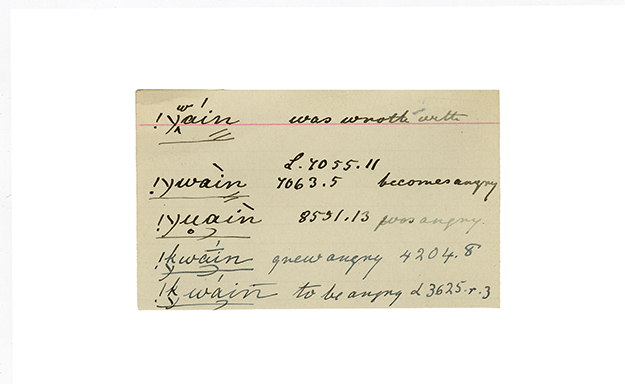 !)wáin was wroth with
L.7055.11
!)waìn 7063.5 becomes angry
!)u̥aìn 8591.13 was angry.
!kwaīn grew angry 4204.8
!kwáīn to be angry L 3625.r.3